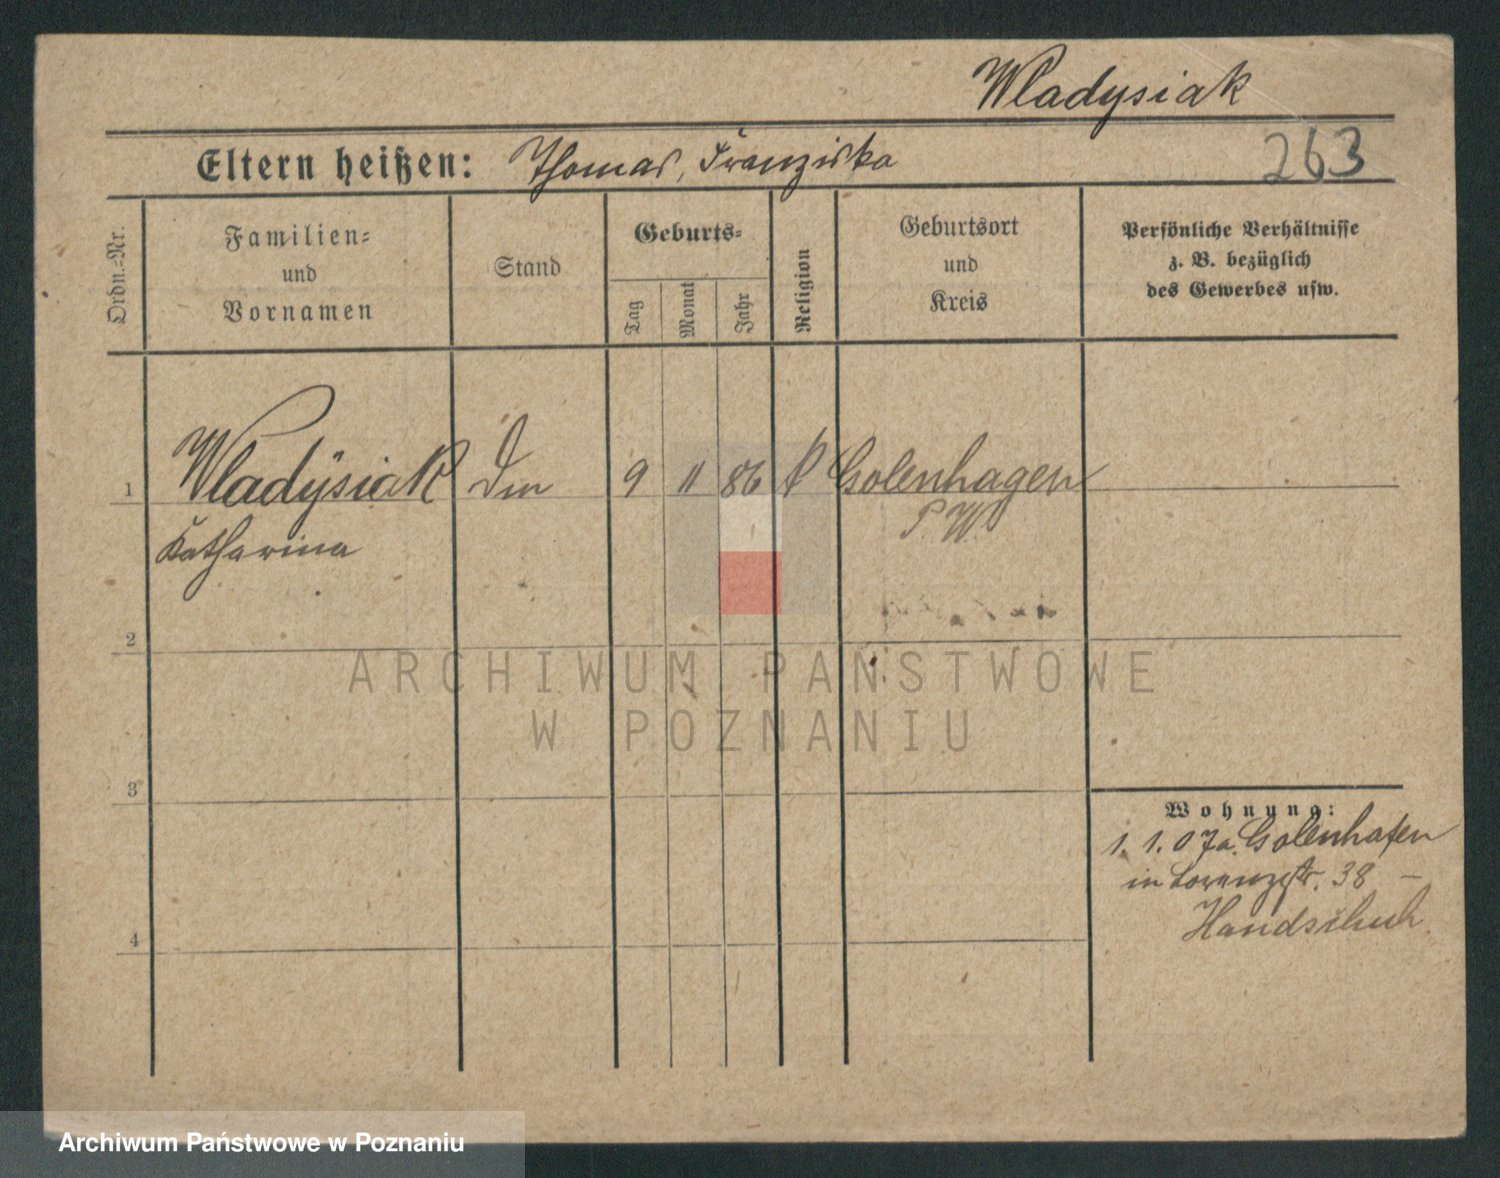 Wladysiak
Eltern heißen: Thomas, Franziska
263
Ordn.-Nr.
Familien-
und
Vornamen
Stand
Geburts-
Tag
Monat
Jahr
Religion
Geburtsort
und
Kreis
Persönliche Verhältnisse
z. B. bezüglich
des Gewerbes usw.
1 Wladÿsiak 9 11 86 k Golenhagen
Katharina P. W.
2
3
4
Wohnung:
1. 1. 07 a. Golenhafen
in Lorenzstr. 38 –
Handschuh.
ARCHIWUM PAŃSTWOWE
W POZNANIU
Archiwum Państwowe w Poznaniu